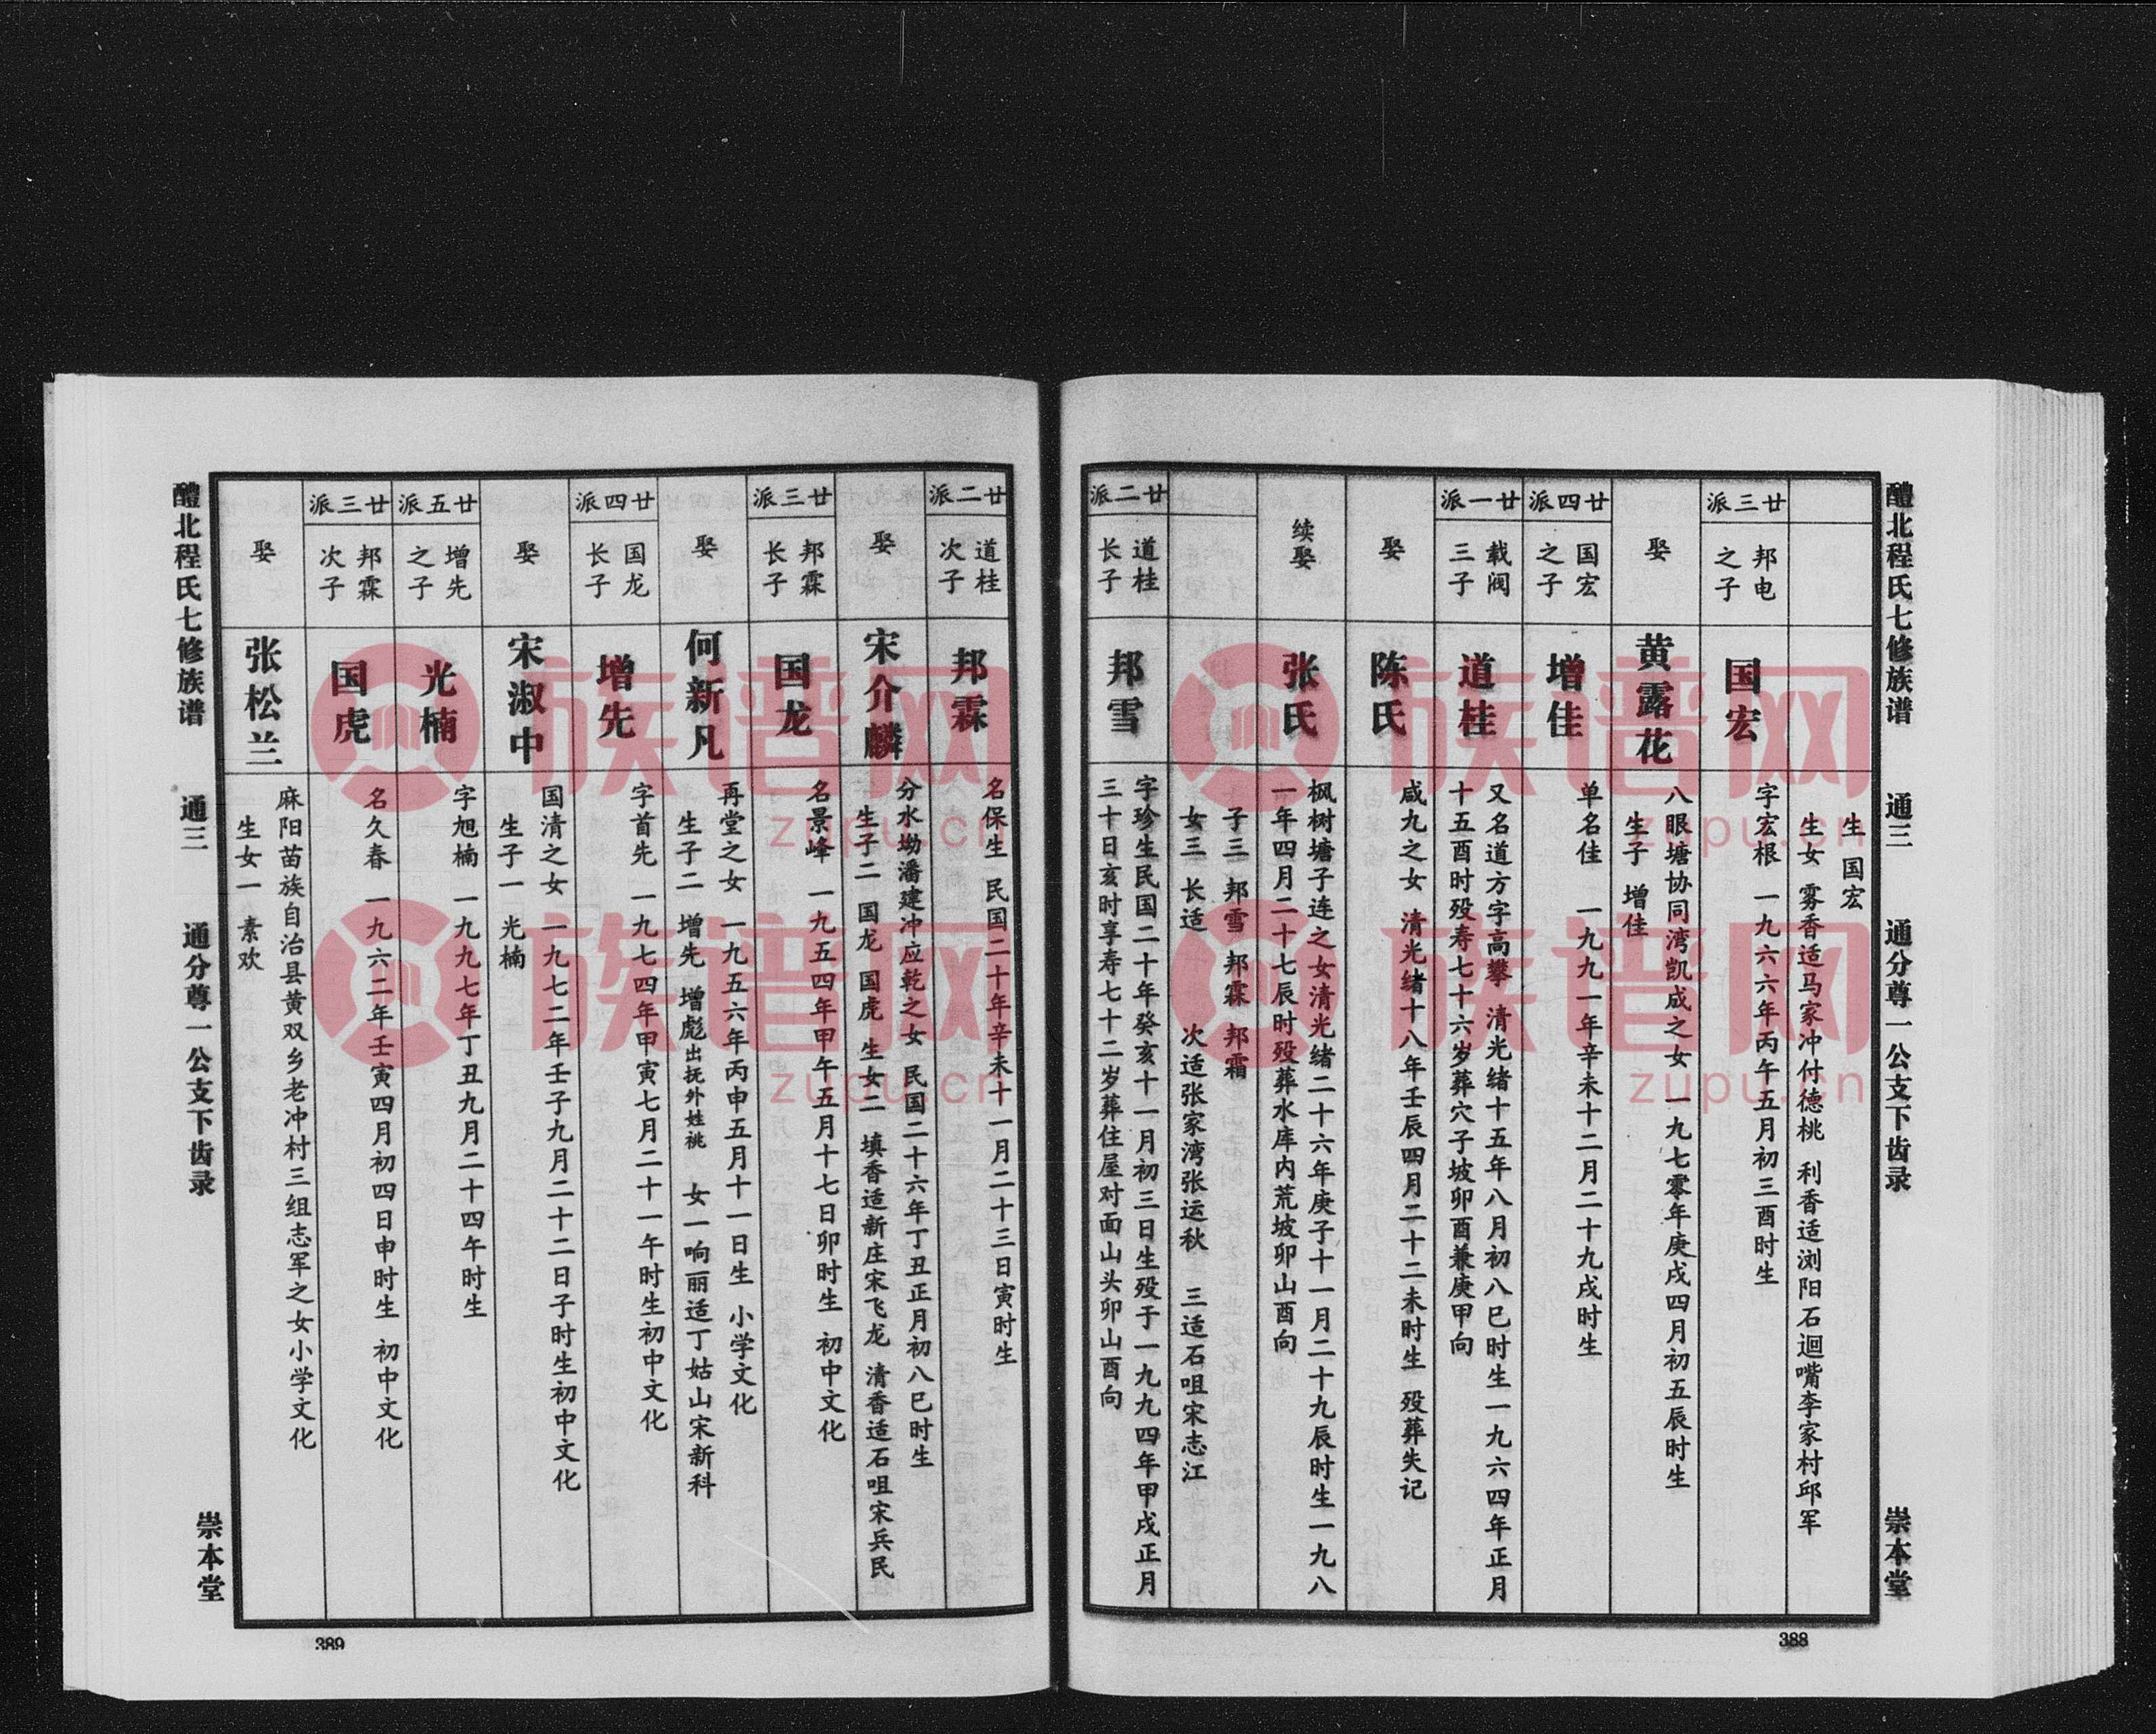 醴北程氏七修族谱 通三 通分尊一公支下齿录 崇本堂
生 国宏
生女 雾香适马家冲付德桃 利香适浏阳石迴嘴李家村邱军
廿三派
邦电
之子
国宏
字宏根 一九六六年丙午五月初三酉时生
娶
黄露花
八眼塘协同湾凯成之女 一九七零年庚戌四月初五辰时生
生子 增佳
廿四派
国宏
之子
增佳
单名佳 一九九一年辛未十二月二十九戌时生
廿一派
载阀
三子
道桂
又名道方字高攀 清光绪十五年八月初八巳时生一九六四年正月
十五酉时殁寿七十六岁葬穴子坡卯酉兼庚甲向
娶
陈氏
咸九之女 清光绪十八年壬辰四月二十二未时生 殁葬失记
续娶
张氏
枫树塘子连之女清光绪二十六年庚子十一月二十九辰时生一九八
一年四月二十七辰时殁葬水库内荒坡卯山酉向
子三 邦雪 邦霖 邦霜
女三 长适 次适张家湾张运秋 三适石咀宋志江
廿二派
道桂
长子
邦雪
字珍生民国二十年癸亥十一月初三日生殁于一九九四年甲戌正月
三十日亥时享寿七十二岁葬住屋对面山头卯山酉向
388
廿二派
道桂
次子
邦霖
名保生 民国二十年辛未十一月二十三日寅时生
娶
宋介麟
分水坳潘建冲应乾之女 民国二十六年丁丑正月初八巳时生
生子二 国龙 国虎 生女二 填香适新庄宋飞龙 清香适石咀宋兵民
廿三派
邦霖
长子
国龙
名景峰 一九五四年甲午五月十七日卯时生 初中文化
娶
何新凡
再堂之女 一九五六年丙申五月十一日生 小学文化
生子二 增先 增彪出抚外姓祧 女一响丽适丁姑山宋新科
廿四派
国龙
长子
增先
字首先 一九七四年甲寅七月二十一午时生初中文化
娶
宋淑中
国清之女 一九七二年壬子九月二十二日子时生初中文化
生子一 光楠
廿五派
增先
之子
光楠
字旭楠 一九九七年丁丑九月二十四午时生
廿三派
邦霖
次子
国虎
名久春 一九六二年壬寅四月初四日申时生 初中文化
娶
张松兰
麻阳苗族自治县黄双乡老冲村三组志军之女小学文化
生女一 素欢
醴北程氏七修族谱 通三 通分尊一公支下齿录 崇本堂
389
族谱网
zupu.cn
族谱网
zupu.cn
族谱网
zupu.cn
族谱网
zupu.cn